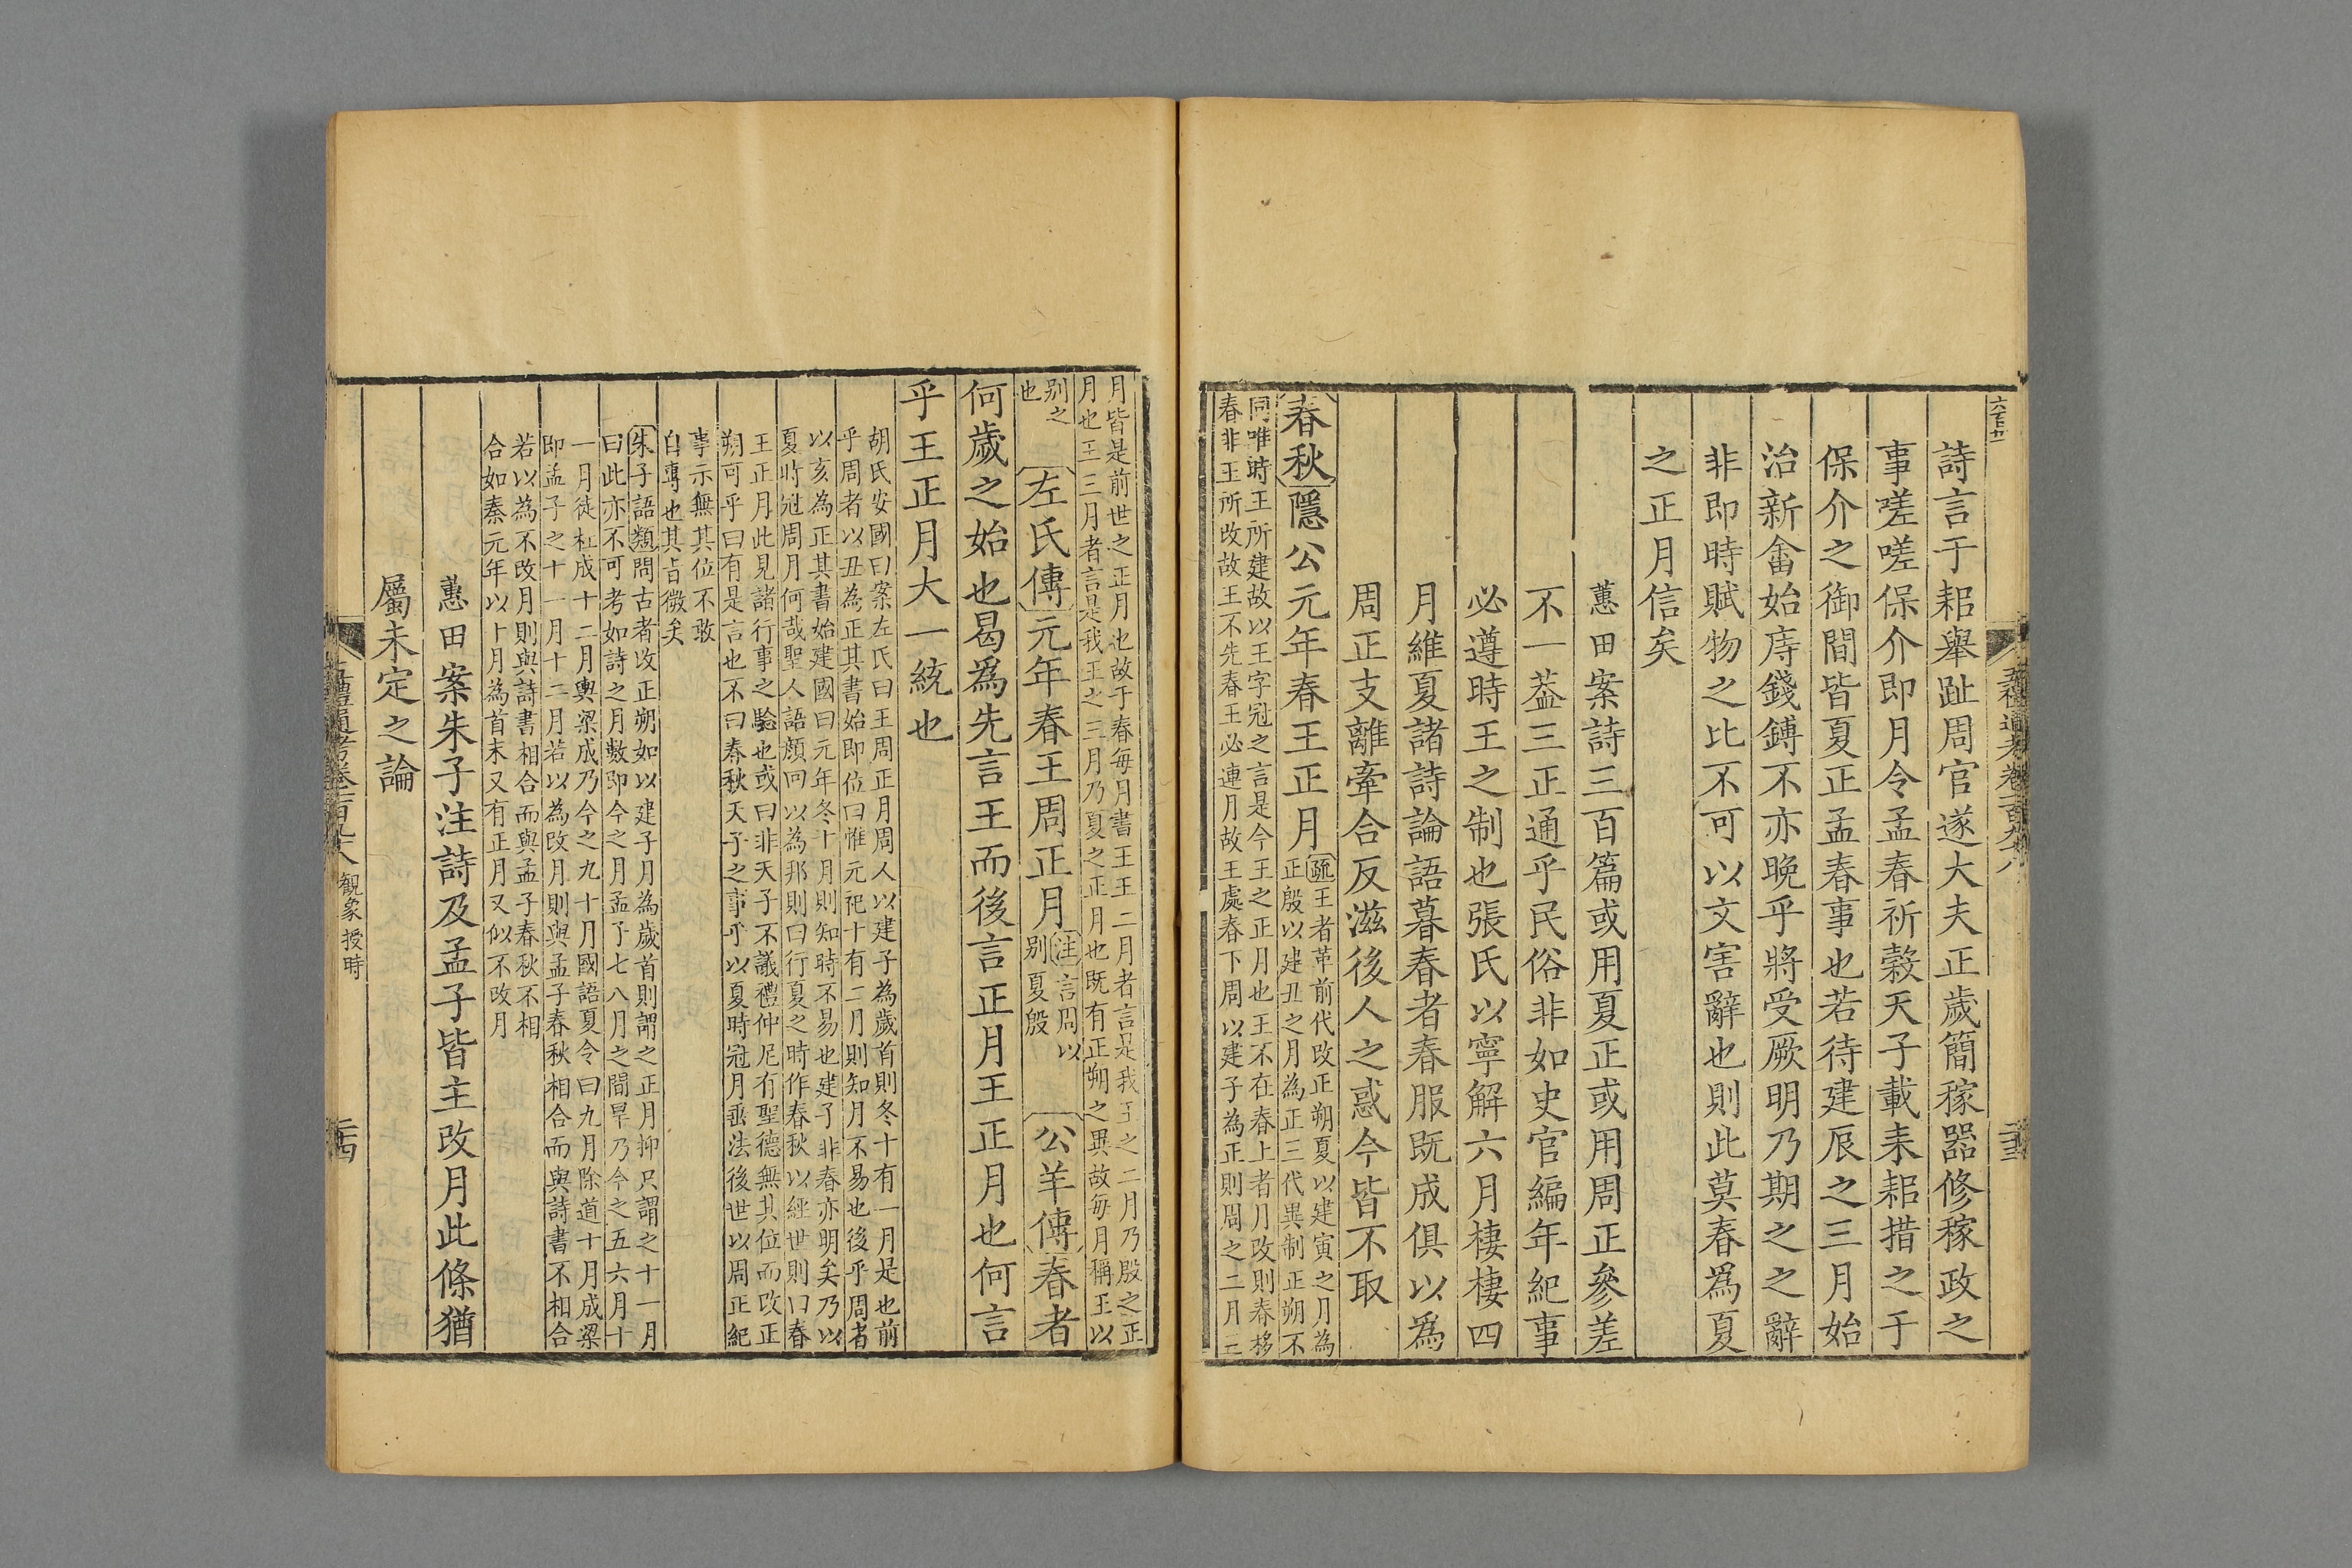 詩言于耜舉趾周官遂大夫正歲簡稼器修稼政之
事嗟嗟保介即月令孟春祈穀天子載耒耜措之于
保介之御間皆夏正孟春事也若待建辰之三月始
治新畬始庤錢鎛不亦晚乎將受厥明乃期之之辭
非即時賦物之比不可以文害辭也則此莫春爲夏
之正月信矣
蕙田案詩三百篇或用夏正或用周正參差
不一葢三正通乎民俗非如史官編年紀事
必遵時王之制也張氏以寧解六月棲棲四
月維夏諸詩論語暮春者春服既成俱以爲
周正支離牽合反滋後人之惑今皆不取
春秋隱公元年春王正月
疏王者革前代改正朔夏以建寅之月為
正殷以建丑之月為正三代異制正朔不
同唯時王所建故以王字冠之言是今王之正月也王不在春上者月改則春移
春非王所改故王不先春王必連月故王處春下周以建子為正則周之二月三
月皆是前世之正月也故于春每月書王王二月者言是我王之二月乃殷之正
月也王三月者言是我王之三月乃夏之正月也既有正朔之異故每月稱王以
別之
也
左氏傳元年春王周正月
注言周以
别夏殷
公羊傳春者
何歲之始也曷爲先言王而後言正月王正月也何言
乎王正月大一統也
胡氏安國曰案左氏曰王周正月周人以建子為歲首則冬十有一月是也前
乎周者以丑為正其書始即位曰惟元祀十有二月則知月不易也後乎周者
以亥為正其書始建國曰元年冬十月則知時不易也建子非春亦明矣乃以
夏時冠周月何哉聖人語顏回以為邦則曰行夏之時作春秋以經世則曰春
王正月此見諸行事之驗也或曰非天子不議禮仲尼有聖德無其位而改正
朔可乎曰有是言也不曰春秋天子之事乎以夏時冠月垂法後世以周正紀
事示無其位不敢
自專也其旨微矣
朱子語類問古者改正朔如以建子月為歲首則謂之正月抑只謂之十一月
曰此亦不可考如詩之月數即今之月孟子七八月之間旱乃今之五六月十
一月徒杠成十二月輿梁成乃今之九十月國語夏令曰九月除道十月成梁
即孟子之十一月十二月若以為改月則與孟子春秋相合而與詩書不相合
若以為不改月則與詩書相合而與孟子春秋不相
合如秦元年以十月為首末又有正月又似不改月
蕙田案朱子注詩及孟子皆主改月此條猶
屬未定之論
五禮通考卷一百九十八 觀象授時